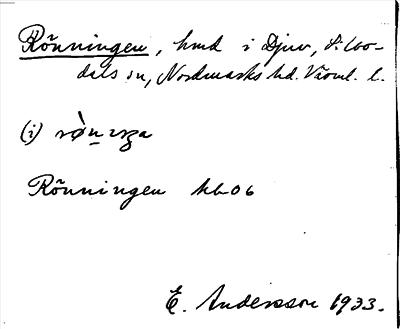 Rönningen, hmd i Djuv, S:lbo-
dals sn, Nordmarks hd. Värml. l.
(i)
Rönningen hb 06
E. Andersson 1933.